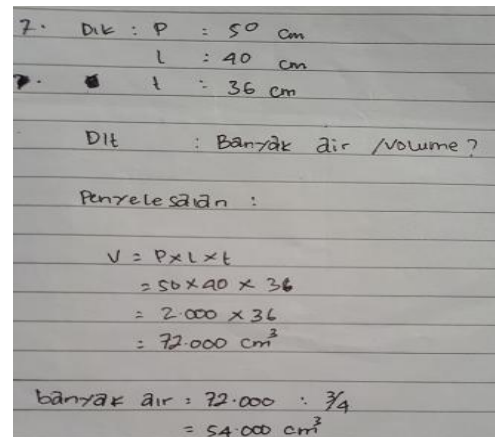 7. Dik : P : 50 cm
l : 40 cm
t : 36 cm
Dit : Banyak air /volume?
Penyelesaian :
V = P x l x t
= 50 x 40 x 36
= 2.000 x 36
= 72.000 cm³
banyak air = 72.000 : 3/4
= 54.000 cm³